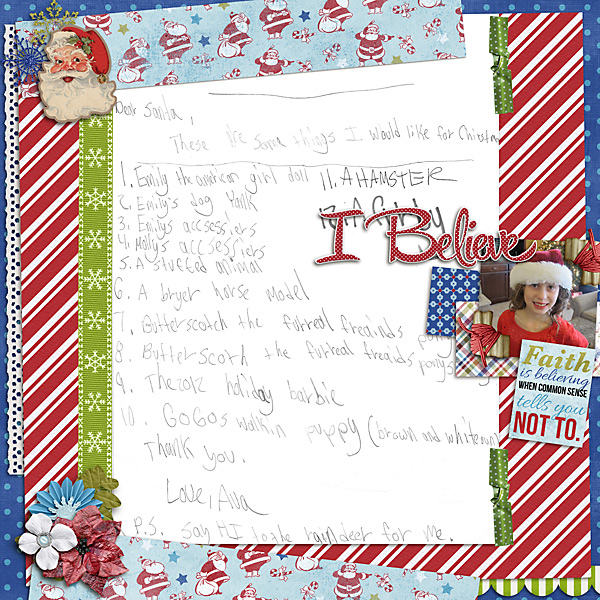 Dear Santa,
These Are some things I would like for
1. Emily the american girl doll
2. Emily's dog Yank
3. Emily's accsessiers
4. Molly's accsessiers
5. A stuffed animal
6. A bryer horse model
7. Butterscotch the furreal freainds
8. Butterscoth the furreal freaids ponys
9. The 2012 holiday barbie
10. GOGOs walkin puppy (brown and white
Thank you.
Love, Ava
P.S. Say HI to the for me.
11. A HAMSTER
I Believe
Faith
is believing
WHEN COMMON SENSE
tells you
NOT TO.